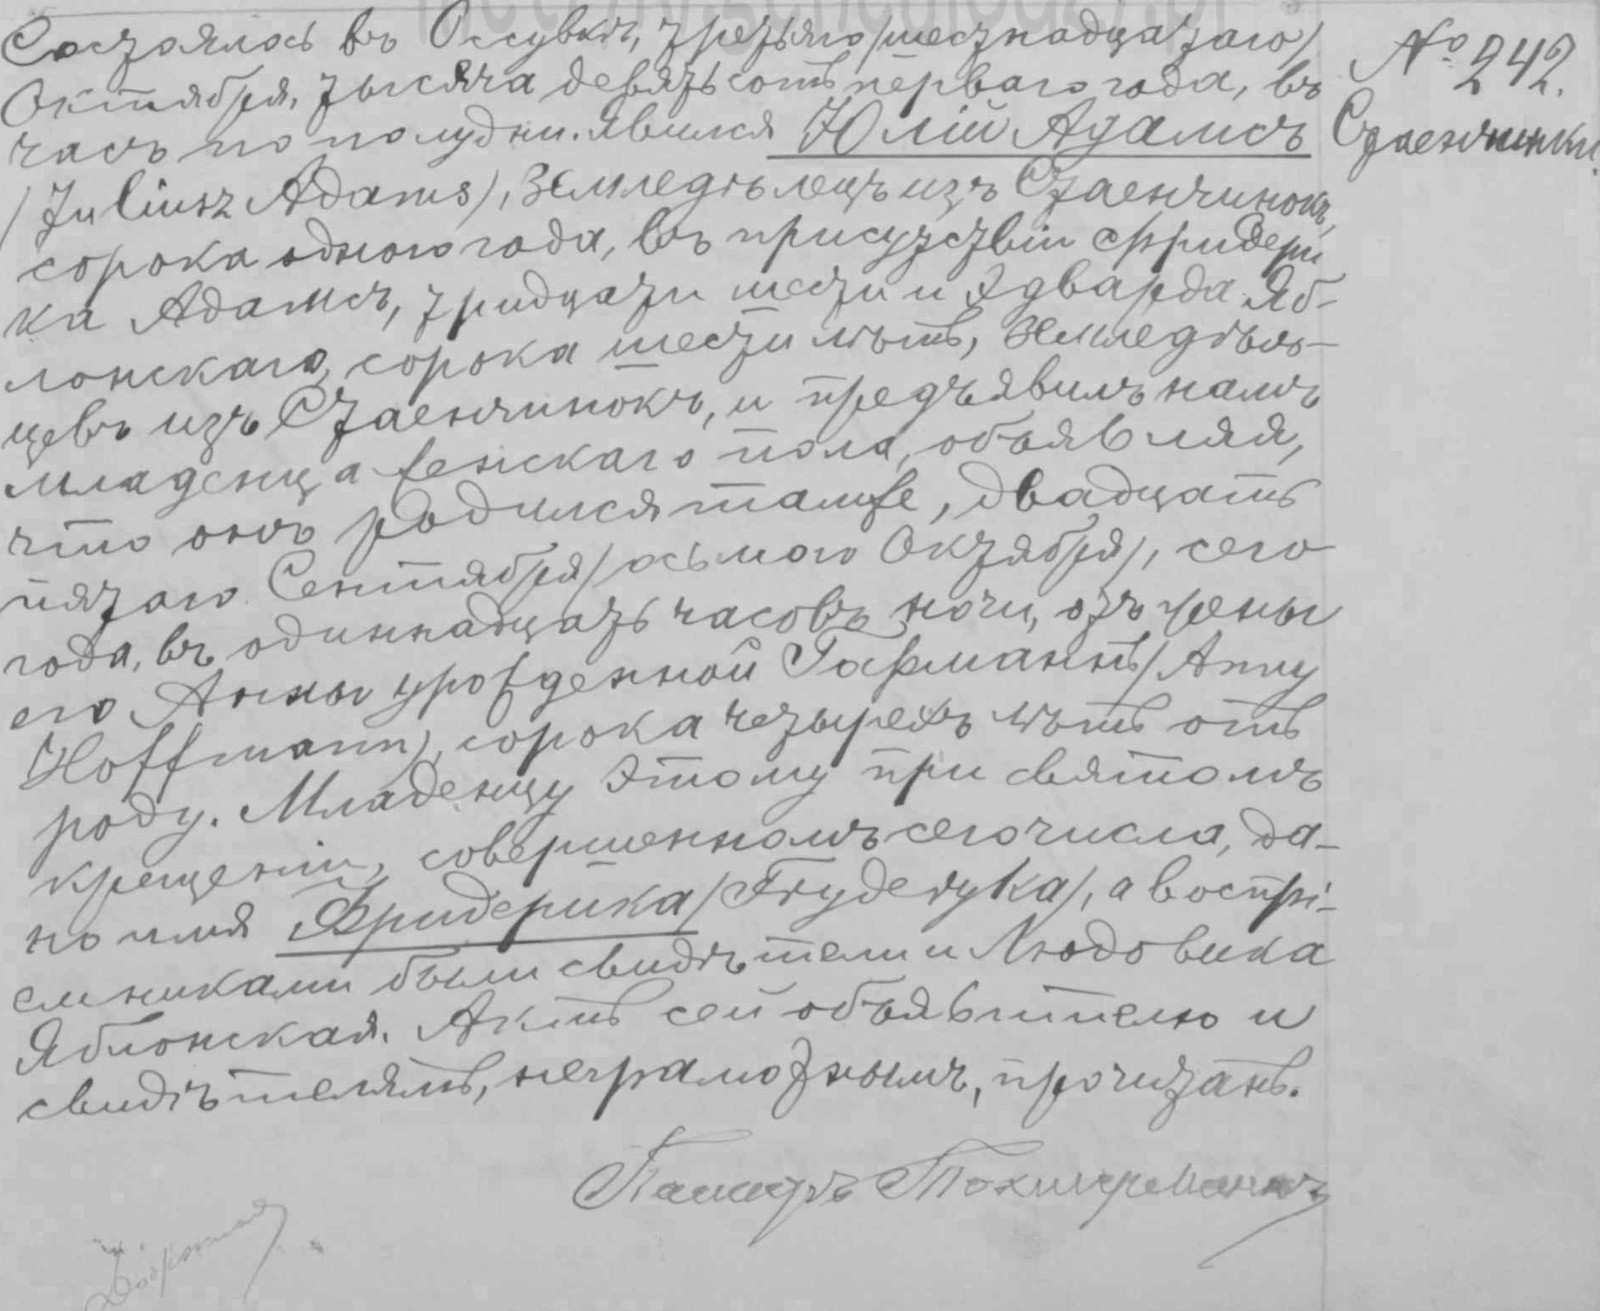 № 242.
Стаенчинки.
Состоялось въ Оссувкѣ, третьяго/шестнадцатаго/
Октября, тысяча девятьсотъ перваго года, въ
часъ по полудни. Явился Юлій Адамсъ
/Juliusz Adams/, земледѣлецъ изъ Стаенчинокъ,
сорока одного года, въ присутствіи Фридери
ка Адамсъ, тридцати шести и Эдварда Яб-
лонскаго, сорока шести лѣтъ, земледѣль-
цевъ изъ Стаенчинокъ, и предъявилъ намъ
младенца женскаго пола, объявляя,
что онъ родился тамже, двадцать
пятаго Сентября/осьмого Октября/, сего
года, въ одиннадцать часовъ ночи, отъ жены
его Анны урожденной Гофманнъ/Anny
Hoffmann/, сорока четырехъ лѣтъ отъ
роду. Младенцу этому при святомъ
крещеніи, совершенномъ сего числа, да-
но имя Фридерика/Fryderyka/, а воспрі-
емниками были свидѣтели и Людовика
Яблонская. Актъ сей объявителю и
свидѣтелямъ, неграмотнымъ, прочитанъ.
Пасторъ